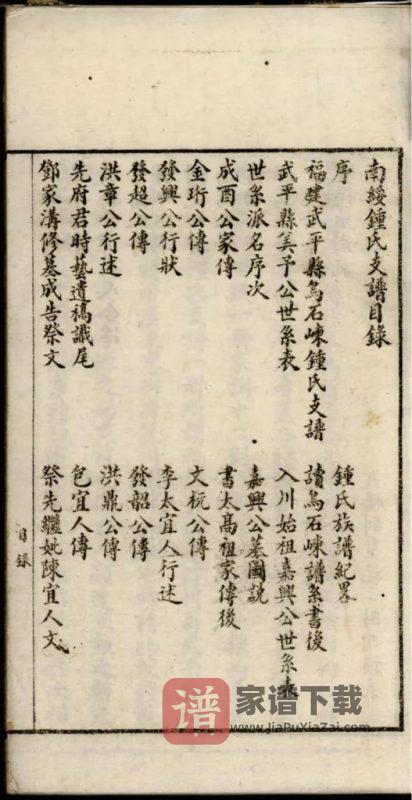 南綏鍾氏支譜目錄
序
鍾氏族譜紀畧
福建武平縣烏石崬鍾氏支譜
讀烏石崬譜系書後
武平縣美予公世系表
入川始祖嘉興公世系表
世系派名序次
嘉興公墓圖說
成酉公家傳
書太高祖家傳後
金珩公傳
文杬公傳
發興公行狀
李太宜人行述
發超公傳
發韶公傳
洪章公行述
洪鼎公傳
先府君時藝遺稿識尾
包宜人傳
鄧家溝修墓成告祭文
祭先繼妣陳宜人文
目錄
谱 家谱下载
www.JiaPuXiaZai.com